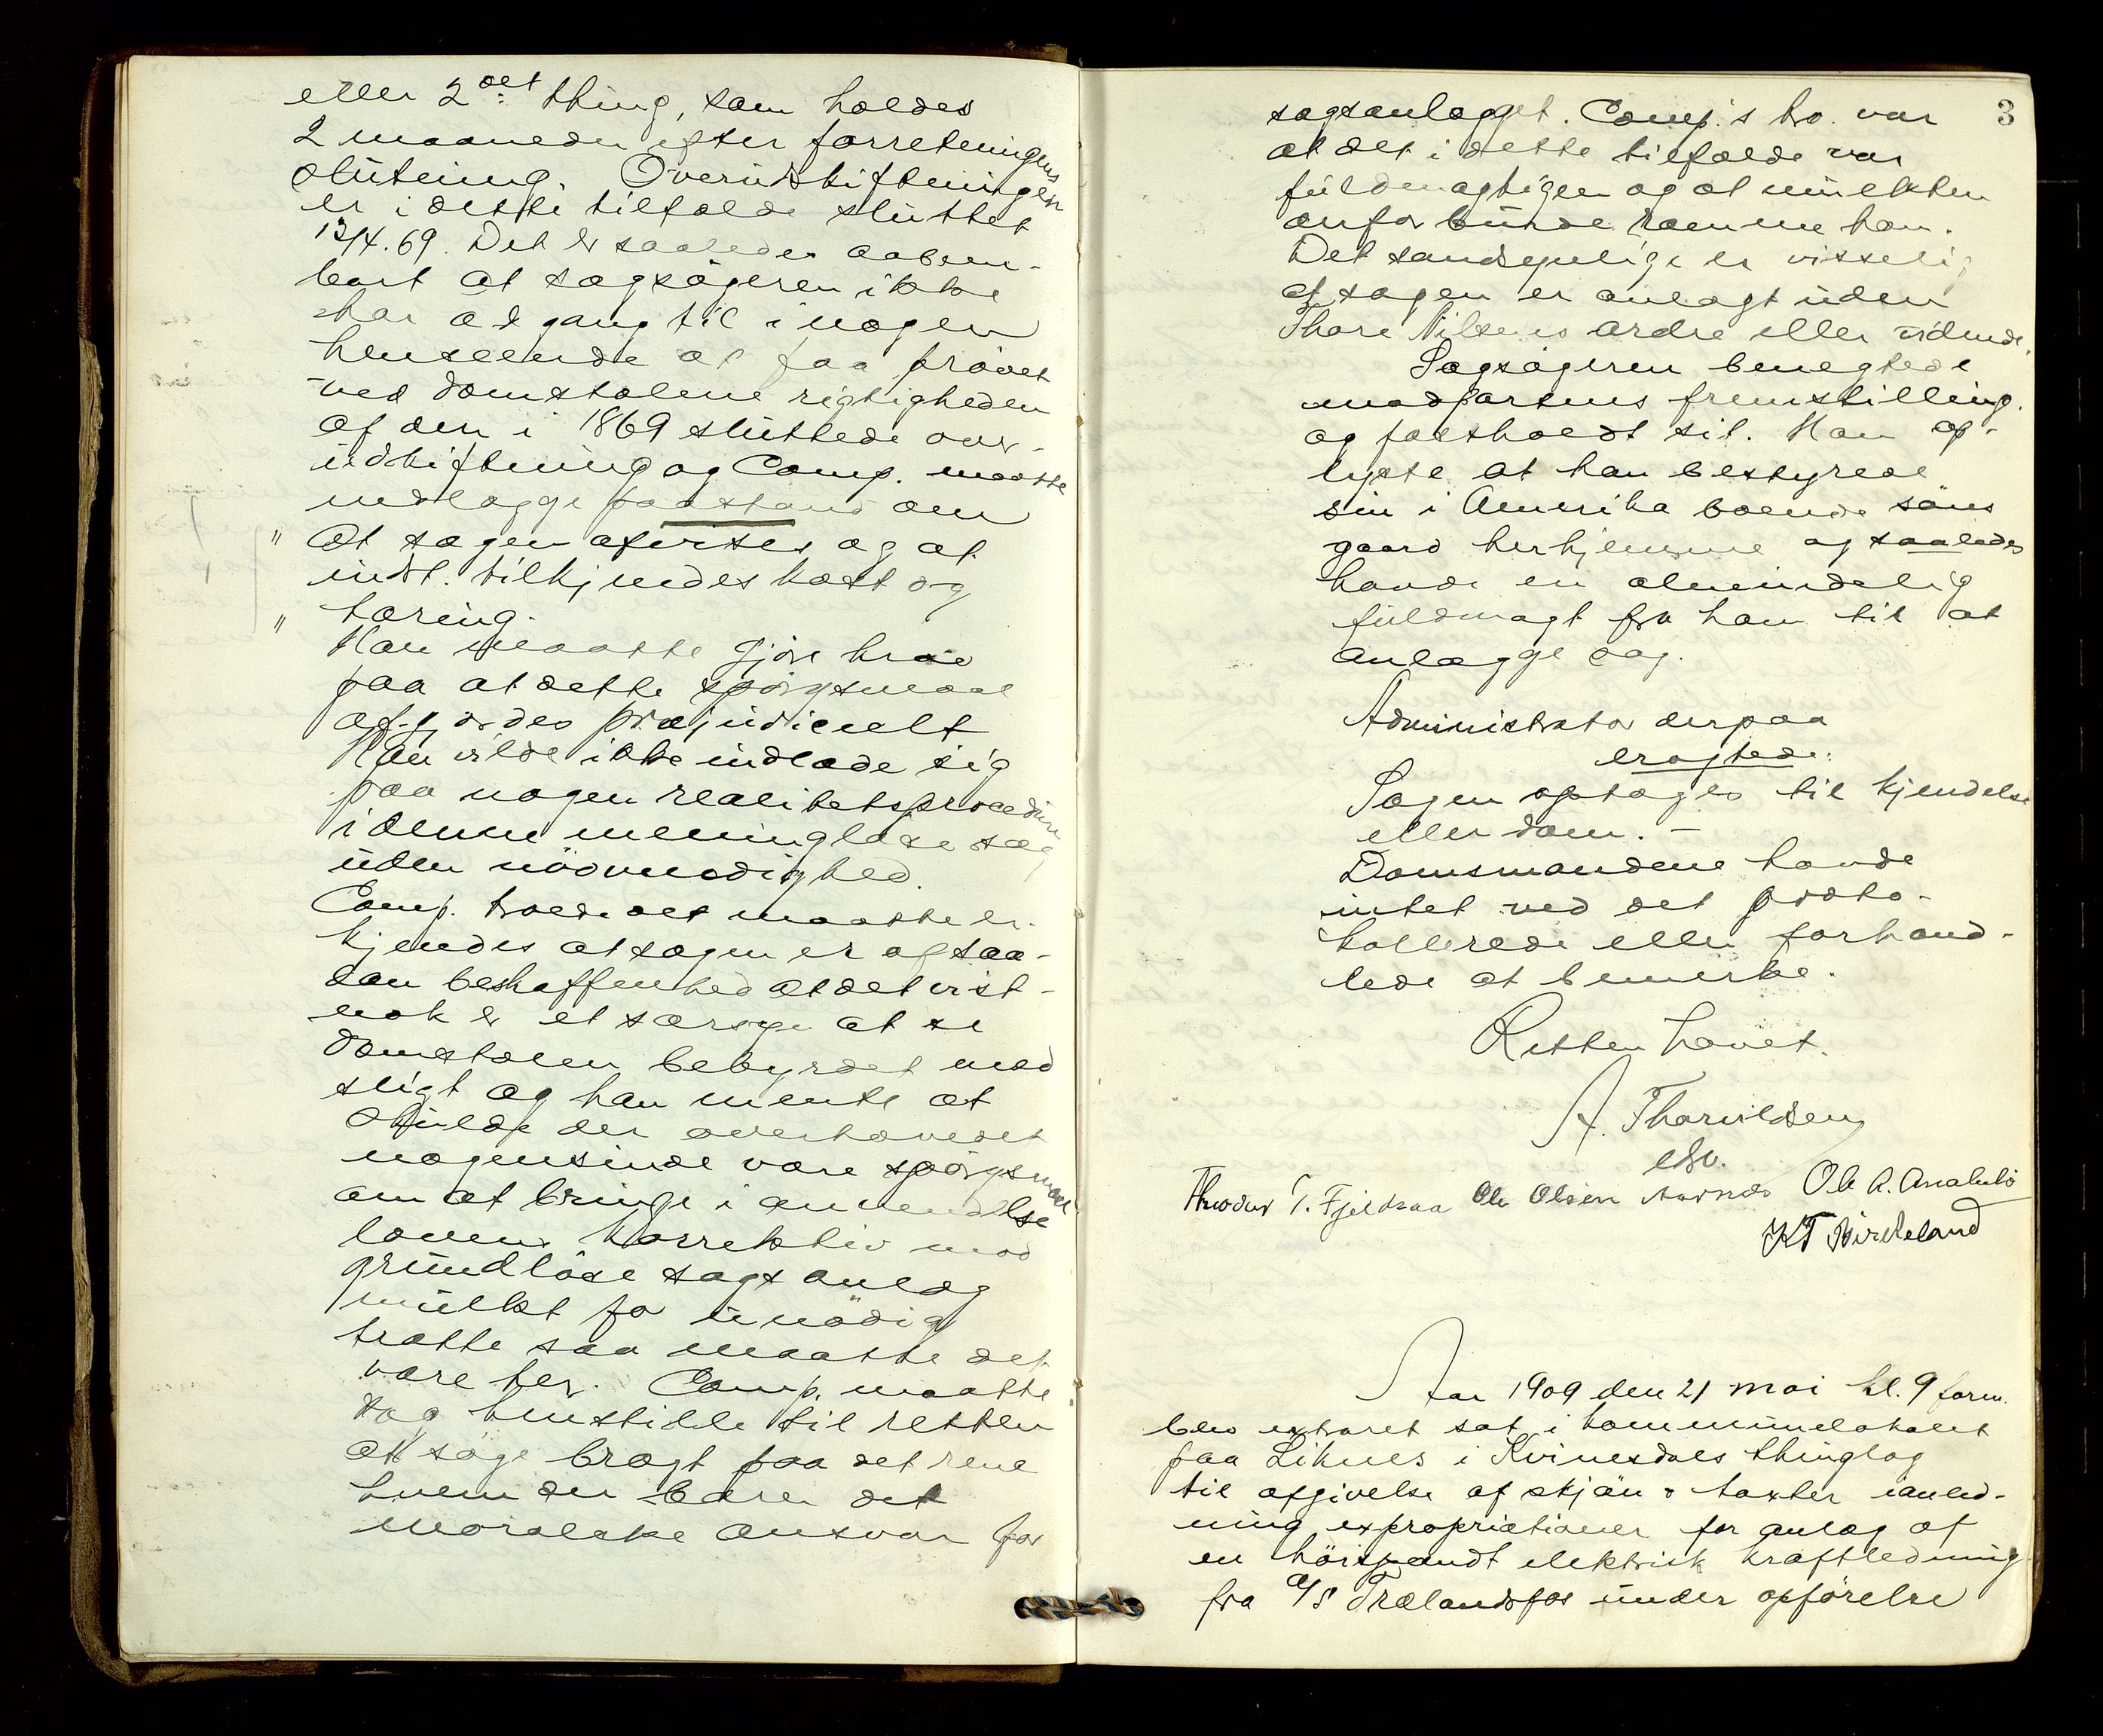 eller 2det thing, som holdes
2 maaneder efter forretningens
slutning. Overudskiftningen
er i dette tilfælde sluttet
13/4.69. Det er saaledes aaben-
bart at sagsøgeren ikke
har adgang til i nogen
henseende at faa prøvet
ved domstolene rigtigheden
af den i 1869 sluttede over-
udskiftning og Comp. maatte
nedlægge paastand om
" At sagen afvises og at
indst. tilkjendes kost og
" tæring.
Han maatte gjøre krav
paa at dette spørgsmaal
afgjordes præjudicielt
Han vilde ikke indlade sig
paa nogen realitetsprocedure
i denne meningløse sag
uden nødvendighed.
Comp. troede det maatte er-
kjendes at sagen er af saa-
dan beskaffenhed at det vist-
nok er et særsyn at se
domstolen bebyrdet med
sligt og han mente at
skulde der overhovedet
nogensinde være spørgsmaal
om at bringe i anvendelse
lovens korrektiv mod
grundløse sagsanlæg
mulkt for unødig
trætte saa maatte det
være her. Comp. maatte
dog henstille til retten
at søge bragt paa det rene
hvem der bærer det
moralske ansvar for
3
sagsanlægget. Comp.'s tro var
at det i dette tilfælde var
fuldmægtigen og at mulkten
anfor burde ramme ham.
Det sandsynlige er visselig
at sagen er anlagt uden
Thore Nilsens ordre eller vidende.
Sagsøgeren benegtede
modpartens fremstilling.
og fastholdt sit. Han op-
lyste at han bestyrede
sin i Amerika boende søns
gaard herhjemme og saaledes
havde en almindelig
fuldmagt fra ham til at
anlægge sag.
Administrator derpaa
eragtede:
Sagen optages til kjendelse
eller dom. -
Domsmændene havde
intet ved det proto-
kollerede eller forhand-
lede at bemerke.
Retten hævet.
A. Thorvildsen
cst.
Theodor T. Fjeldsaa Ole Olsen Ole A.
KT Birkeland
Aar 1909 den 21 mai kl. 9 form.
blev extraret sat i kommunelokalet
paa Liknes i Kvinesdals thinglag
til afgivelse af skjøn & taxter i anled-
ning expropriationer for anlæg af
en høispændt elektrisk kraftledning
fra A/S Trælandsfos under opførelse